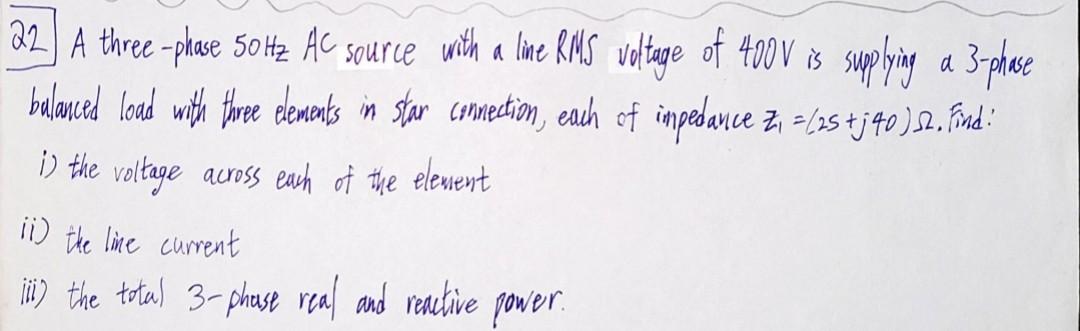 22 A three-phase 50Hz AC source with a line RMS voltage of 400V is supplying a 3-phase
balanced load with three elements in star connection, each of impedance Z₁ =(25+j40)Ω. Find:
i) the voltage across each of the element
ii) the line current
iii) the total 3-phase real and reactive power.